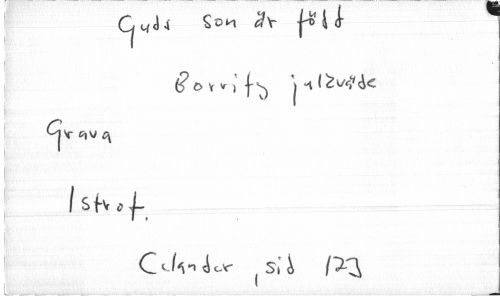 Guds son är född
Borrits julkväde
Grava
1 strof.
Celander, sid 123